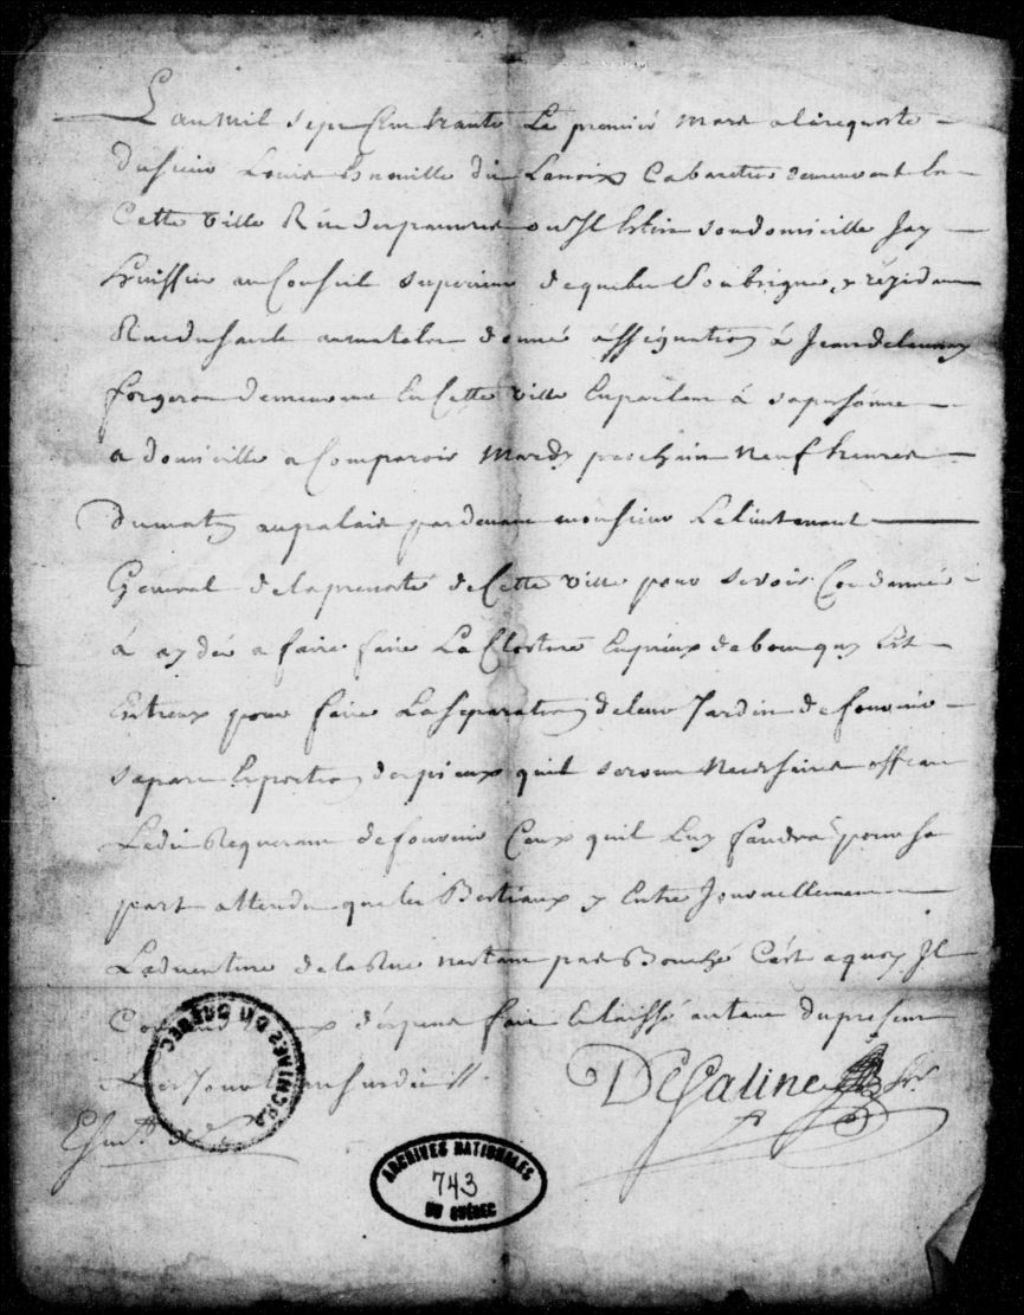 L an mil sept Cent trante Le premier mars a la requeste
du sieur Louis Enouille dit Lanoix Cabaretier demeurant En
Cette ville Rüe des pauvres ou Il Eslire son domicille Jay
huissier au Conseil superieur de quebec Soubsigné, y rézidant
Rue du sault au matelot donné assignation à Jean delaunay
forgeron demeurant En Cette ville En parlant à sa personne
a domicille a Comparoir Mardy prochain neuf heures
du matin au palais par devant monsieur Le lieutenant
General de la prevosté de Cette ville pour se voir Condamné
à aydér a faire faire La Closture En pieux debout quy Est
Entreux pour faire La separation de leur Jardin de fournir
sa part Et portion des pieux quil seront Necessaires offrant
Ledit Requerant de fournir Ceux quil Luy faudra pour sa
part attendu que les Bestiaux y Entre Journellement
Ladventure de la Rue nestant pas Bouché Cést a quoy Il
Co x déspens fait Et laissé autant du present
Les Jour an susdit
DeSaline hr
ARCHIVES DU QUÉBEC
ARCHIVES NATIONALES
743
DU QUÉBEC